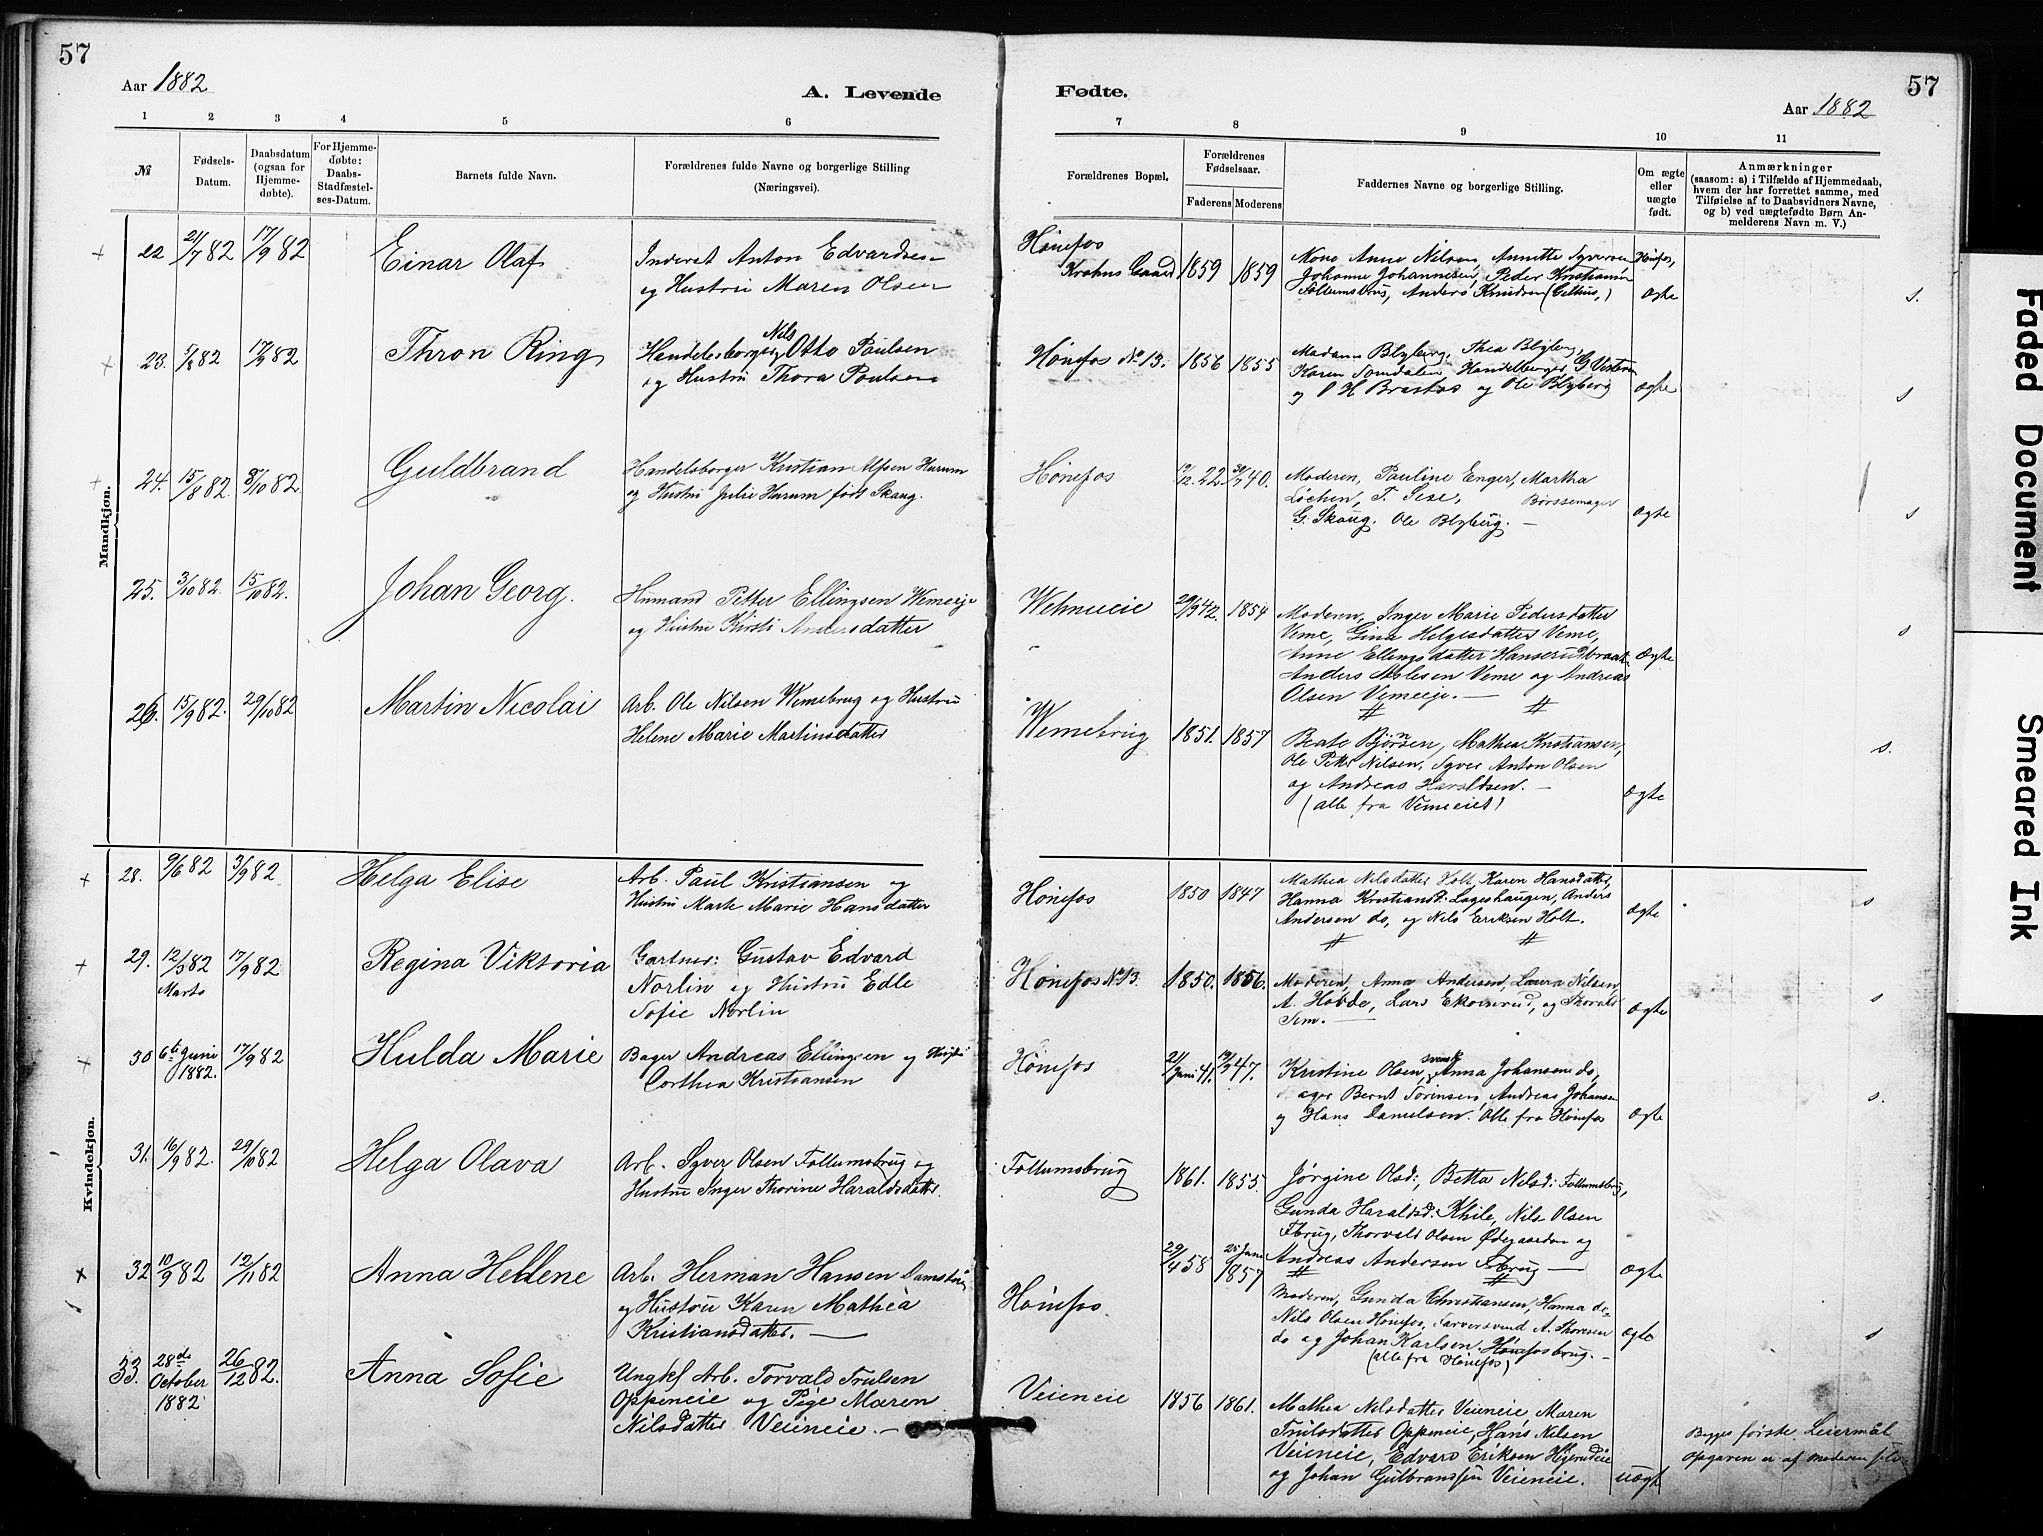 57
57
Aar 1882
A. Levende
Fødte.
Aar 1882
1 2 3 4 5 6
7 8 9 10 11
№
Fødsels-Datum.
Daabsdatum (ogsaa for Hjemme-døbte).
For Hjemme-døbte: Daabs-Stadfæstel-ses-Datum.
Barnets fulde Navn.
Forældrenes fulde Navne og borgerlige Stilling
(Næringsvei).
Forældrenes Bopæl.
Forældrenes Fødselsaar.
Faderens Moderens
Faddernes Navne og borgerlige Stilling.
Om ægte eller uægte født.
Anmærkninger
(saasom: a) i Tilfælde af Hjemmedaab,
hvem der har forrettet samme, med
Tilføielse af to Daabsvidners Navne,
og b) ved uægtefødte Børn An-
melderens Navn m. V.)
Mandkjøn.
22 21/7 82 17/9 82 Einar Olaf
Anton Edvardsen
og Hustru Maren Olsen
Hönefos
Krohns Gaard 1859 1859
Anne Nilsen, Annette Syversen Hönefos,
Johanne Johannesen, Peder Kristiansen
Follumsbrug, Anders Knudsen
ægte
s.
23. 5/8 82 17/9 82 Thron Ring
Handelsborger Nils Otto Paulsen
og Hustru Thora Poulsen
Hönefos No 13. 1856 1855
Madam Blyberg, Thea Blyberg,
Karen Somdalen Handelsborger G Vestern
og O H Brastad og Ole Blyberg
ægte
s
24. 15/8 82 8/10 82 Guldbrand
Handelsborger Kristian Alfsen Harum
og Hustru Julie Harum født Skaug.
Hönefos 19/12 22 30/7 40.
Moderen, Pauline Enger, Martha
Løchen, T. Sese, Børssemager
G. Skaug. Ole Blyberg. —
ægte
s
25. 3/10 82. 15/10 82. Johan Georg.
Husmand Petter Ellingsen Wemeeje
og Hustru Kirsti Andersdatter
Wehmeeie 29/9 42. 1854
Moderen, Inger Marie Pedersdatter
Veme, Gina Helgesdatter Veme,
Anne Ellingsdatter Hanserudbraat
Anders Asleson Veme og Andreas
Olsen Vemeeje. —
ægte
s
26. 15/9 82. 29/10 82 Martin Nicolai
Arb. Ole Nilsen Wemebrug og Hustru
Helene Marie Martinsdatter
Wemebrug 1851. 1857
Beate Bjørnsen, Mathea Kristiansen,
Ole Petter Nilsen, Syver Anton Olsen
og Andreas Haraldsen. —
(alle fra Vemeeiet)
ægte
s.
Kvindekjøn.
28. 9/6 82 3/9 82. Helga Elise
Arb. Paul Kristiansen og
Hustru Marte Marie Hansdatter
Hönefos 1850 1847
Mathea Nilsdatter Holt, Karen Hansdatter,
Hanna Kristiansd: Lageshaugen, Anders
Andersen do, og Nils Eriksen Holt.
ægte
s
29. 12/3 82 Marts 17/9 82 Regina Viktoria
Gartner: Gustav Edvard
Norlin og Hustru Edle
Sofie Norlin
Hönefos No 13. 1850. 1856.
Moderen, Anna Andersen, Laura Nilsen,
A. Hovde, Lars Ekornrud, og Thorvald
Sem. —
ægte
s
30 6te Juni 1882. 17/9 82 Hulda Marie
Bager Andreas Ellingsen og Hustru
Corthea Kristiansen
Hönefos 21/Juni 41. 19/3 47.
Kristine Olsen, svensk Anna Johansen do,
Bager Bernt Sörensen, Andreas Johansen
og Hans Danielsen. Alle fra Hönefos
ægte
s.
31. 16/9 82. 29/10 82 Helga Olava
Arb. Syver Olsen Follumsbrug og
Hustru Inger Thorine Haraldsdatter.
Follumsbrug 1861. 1855.
Jørgine Olsd:, Betta Nilsd: Follumsbrug,
Gunda Haraldsd: Khile, Nils Olsen
Fbrug, Thorvald Olsen Ødegaarden og
Andreas Andersen Fbrug —
ægte
32 10/9 82 12/11 82 Anna Hellene
Arb. Herman Hansen
og Hustru Karen Mathea
Kristiansdatter. —
Hönefos. 29/4 58 25 Juni 1857
Moderen, Gunda Christiansen, Hanna do
Nils Olsen Hönefos, Farversvend A. Thoresen
do og Johan Karlsen. Hönefosbrug. —
(alle fra Hönefos)
ægte
s
33. 28de October 1882 26/12 82. Anna Sofie
Ungkl Arb. Torvald Trulsen
Oppeneie og Pige Maren
Nilsdatter Veieneie. —
Veieneie 1856 1861.
Mathea Nilsdatter Veieneie, Maren
Trulsdatter Oppeneie, Hans Nilsen
Veieneie, Edvard Eriksen
og Johan Gulbrandsen Veieneie.
uægt
Begges første Leiermål
Opgaven er af moderen selv
Faded Document Smeared Ink